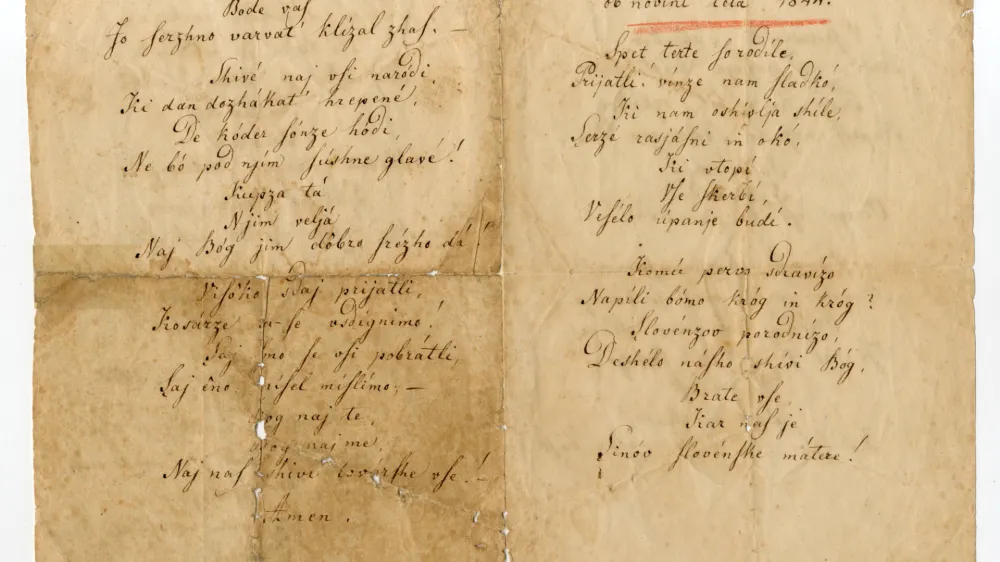 Bode vaſ
Jo ſerzhno varvat' klízal zhaſ. —
Shivé naj vſi naródi,
Ki dan dozhákat' hrepené,
De kóder ſónze hódi,
Ne bó pod njim ſúshne glavé!
Kupza tá
Njim veljá
Naj Bóg jim dôbro ſrézho dá!
Viſôko sdaj prijatli,
Kosárze sa-ſe vsdignimo!
Saj ſmo ſe vſi pobrátli,
Saj êno míſel míſlimo; —
Bog naj te,
Bog naj me,
Naj naſ shivi továrſhe vſe! —
Amen.
ob novini leta 1844.
Spet terte ſo rodíle,
Prijatli! vínze nam ſladkó,
Ki nam oshívlja shíle,
Serzé rasjáſni in okó,
Ki vtopí
Vſe ſkerbí,
Veſélo úpanje budí.
Komú pervo sdravízo
Napíli bómo króg in króg?
Slovénzov porodnízo,
Deshélo náſho shívi Bóg,
Brate vſe,
Kar naſ je
Sinóv ſlovénſke mátere!